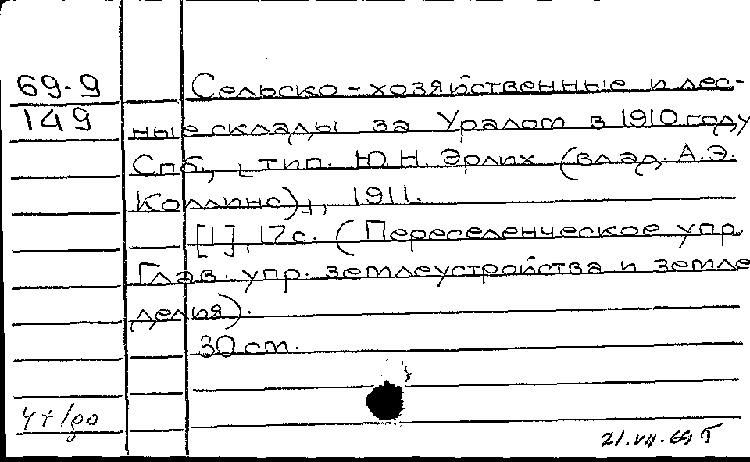 69-9
149
Сельско-хозяйственные и лес-
ные склады за Уралом в 1910 году
Спб., [тип. Ю.Н. Эрлих (влад. А.Э.
Коллинс)], 1911.
[1], 17с. (Переселенческое упр.
Глав. упр. землеустройства и земле
делия).
30 см.
21.VII.69